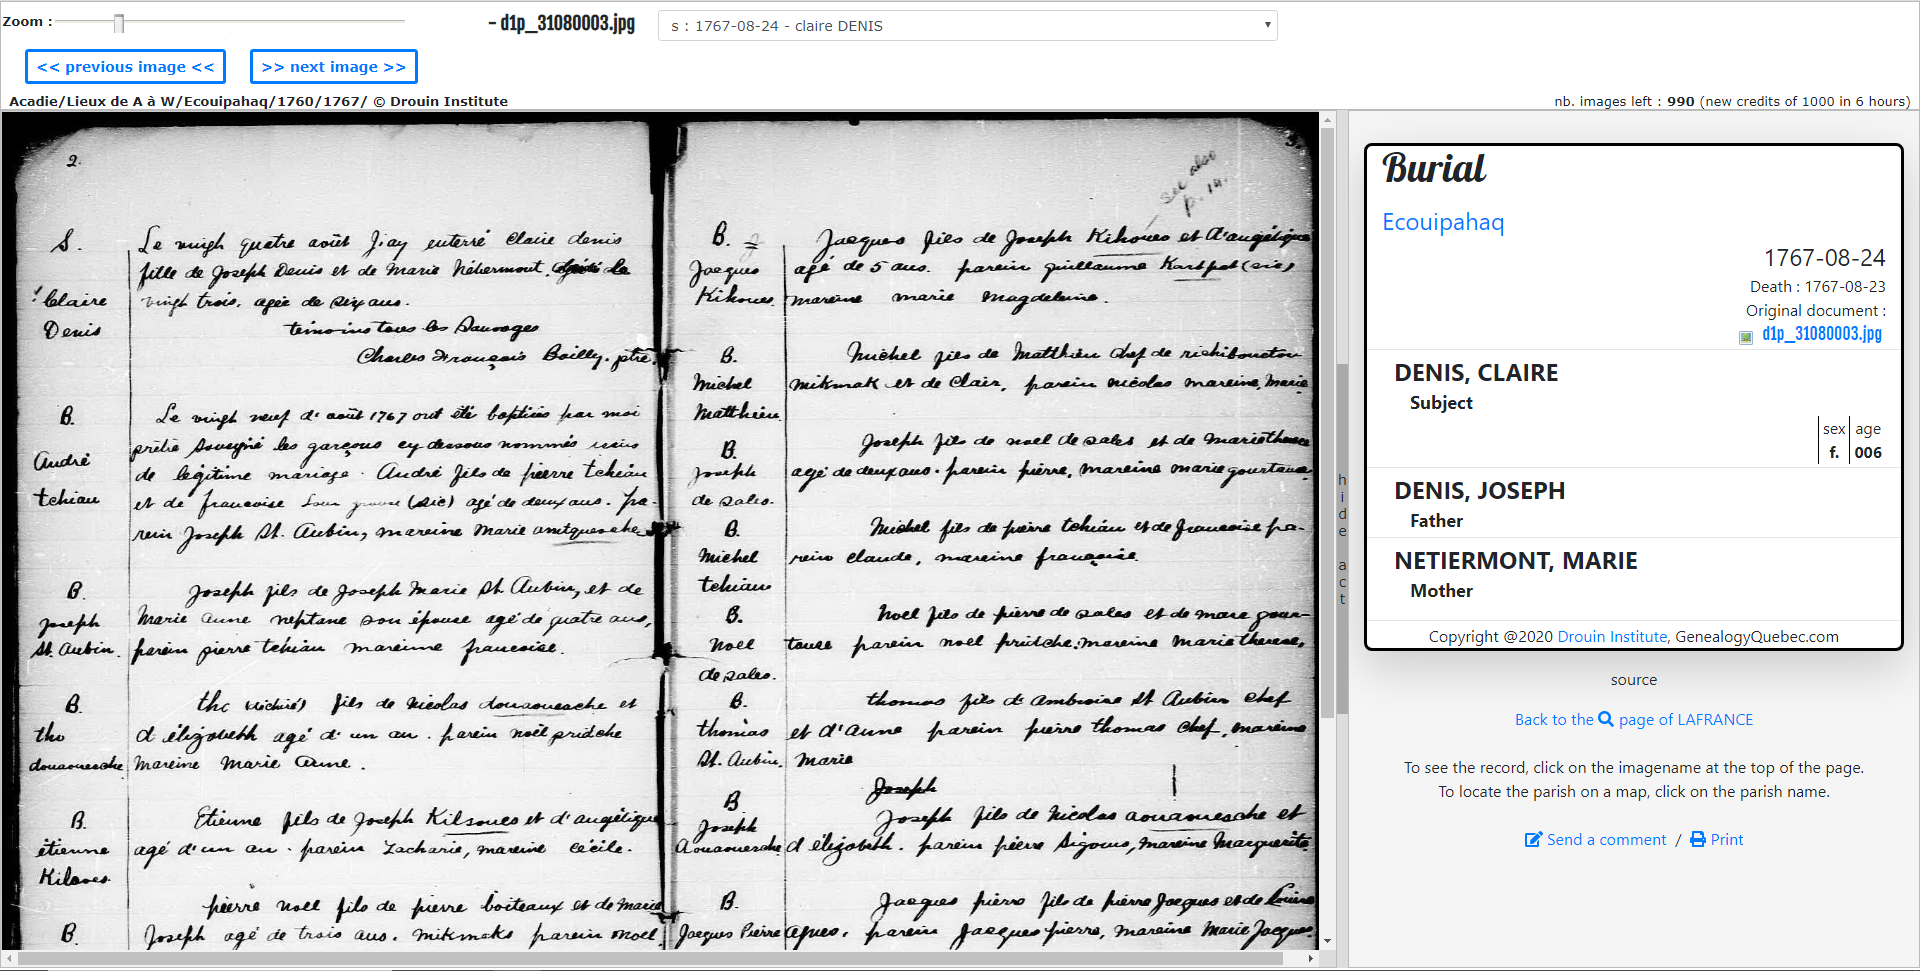 Zoom :
- d1p_31080003.jpg
s : 1767-08-24 - claire DENIS
<< previous image <<
>> next image >>
Acadie/Lieux de A à W/Ecouipahaq/1760/1767/ © Drouin Institute
nb. images left : 990 (new credits of 1000 in 6 hours)
2.
S.
Claire
Denis
Le vingh quatre août J'ay enterré Claire denis
fille de Joseph Denis et de Marie Netiermont. de
vingt trois, agée de six ans.
temoins tous les Sauvages
Charles François Bailly. ptre.
B.
André
tchiau
Le vingh neuf d'août 1767 ont été baptisés par moi
prêtre soussigné les garçons cy dessous nommés unis
de legitime mariage. André fils de pierre tchiau
et de francoise (sic) agé de deux ans. Pa-
rein Joseph St. Aubin, mareine Marie
B.
Joseph
St. Aubin.
Joseph fils de Joseph Marie St Aubin, et de
Marie Anne neptane son épouse agé de quatre ans,
parein pierre tchiau mareinne francoise.
B.
tho
douaouesche
tho (déchiré) fils de Nicolas douaouesche et
d'élizabeth agé d'un an. parein noël pridche
Mareine Marie Anne.
B.
étienne
Kiloues
Etienne fils de Joseph Kilsoues et d'angélique
agé d'un an. parein Zacharie, mareine cécile.
B.
pierre noel fils de pierre boiteaux et de Marie
Joseph agé de trois ans. mikmaks parein Noel.
3.
see also
p. 14.
B.
Jacques
Kihoues.
Jacques fils de Joseph Kihoues et d'angélique
agé de 5 ans. parein guillaume (sic)
mareine marie Magdeleine.
B.
Michel
Matthieu.
Michel fils de Matthieu chef de richibouctou
mikmak et de Clair, parein nicolas mareine, Marie
B.
Joseph
de sales.
Joseph fils de noel de sales et de Marie therese
agé de deux ans. parein pierre, mareine marie
B.
Michel
tchiau
Michel fils de pierre tchiau et de francoise pa-
rein claude, mareine françoise.
B.
Noel
de sales.
Noel fils de pierre de sales et de marie gour-
parein noel pridche. mareine Marie therese,
B.
thomas
St. Aubin.
thomas fils d'Ambroise St Aubin chef
et d'Anne parein pierre thomas chef, mareine
Marie
B
Joseph
Aouaouesche
Joseph
Joseph fils de Nicolas aouaouesche et
d'élizabeth. parein pierre Sigous, Mareine Marguerite
B.
Jacques Pierre
Jacques pierre fils de pierre Jacques et de Louise
Agnes. parein Jacques pierre, Mareine Marie Jacques
hide act
Burial
Ecouipahaq
1767-08-24
Death : 1767-08-23
Original document :
d1p_31080003.jpg
DENIS, CLAIRE
Subject
sex age
f. 006
DENIS, JOSEPH
Father
NETIERMONT, MARIE
Mother
Copyright @2020 Drouin Institute, GenealogyQuebec.com
source
Back to the page of LAFRANCE
To see the record, click on the imagename at the top of the page.
To locate the parish on a map, click on the parish name.
Send a comment / Print